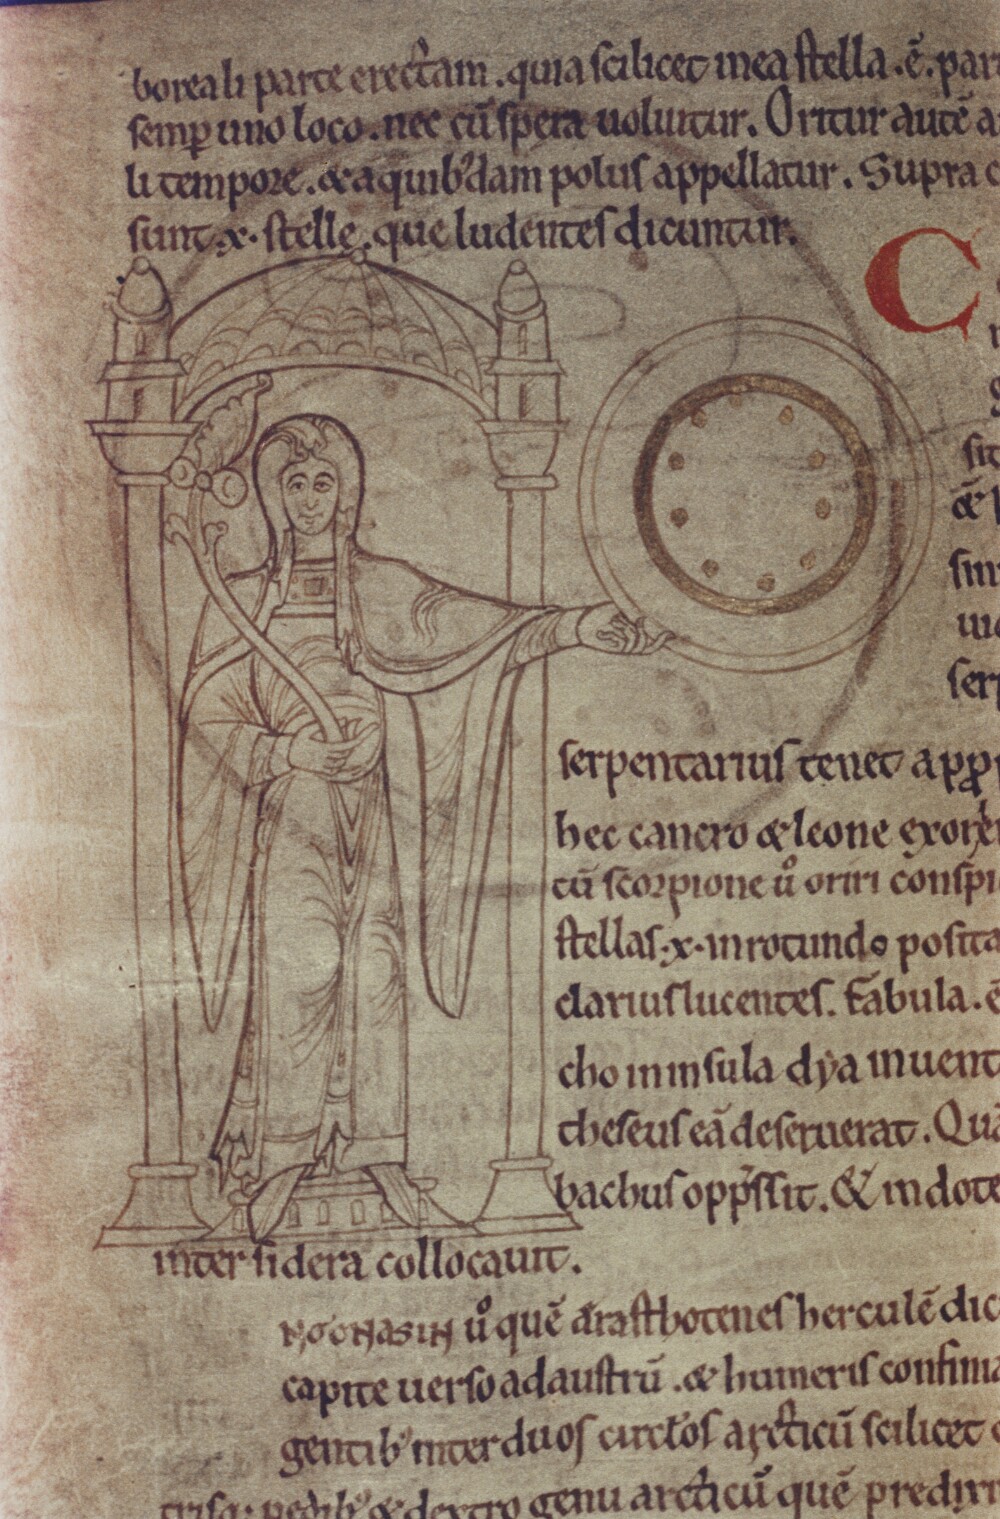 boreali parte erectam. quia scilicet mea stella .ē. par
semp uno loco. nec cū spera uoluitur. Oritur autē a
li tempore. & a quib'dam polus appellatur. Supra c
sunt .x. stelle. que ludentes dicuntur.
C
sit
& l
sin
serp
serpentarius tenet app
hec cancro & leone exorie
cū scorpione ů oriri conspi
stellas .x. in rotundo posita
clarius lucentes. Fabula .ē
cho in insula dẏa inuent
theseus eā deseruerat. Quā
bachus opp̄ssit. & in dote
inter sidera collocauit.
NGONASIN ů quē arasthotenes herculē dic
capite uerso ad austrū. & humeris confinia
gentib' inter duos circl'os arcticū scilicet
pedib' & dextro genu arcticū quē predixi